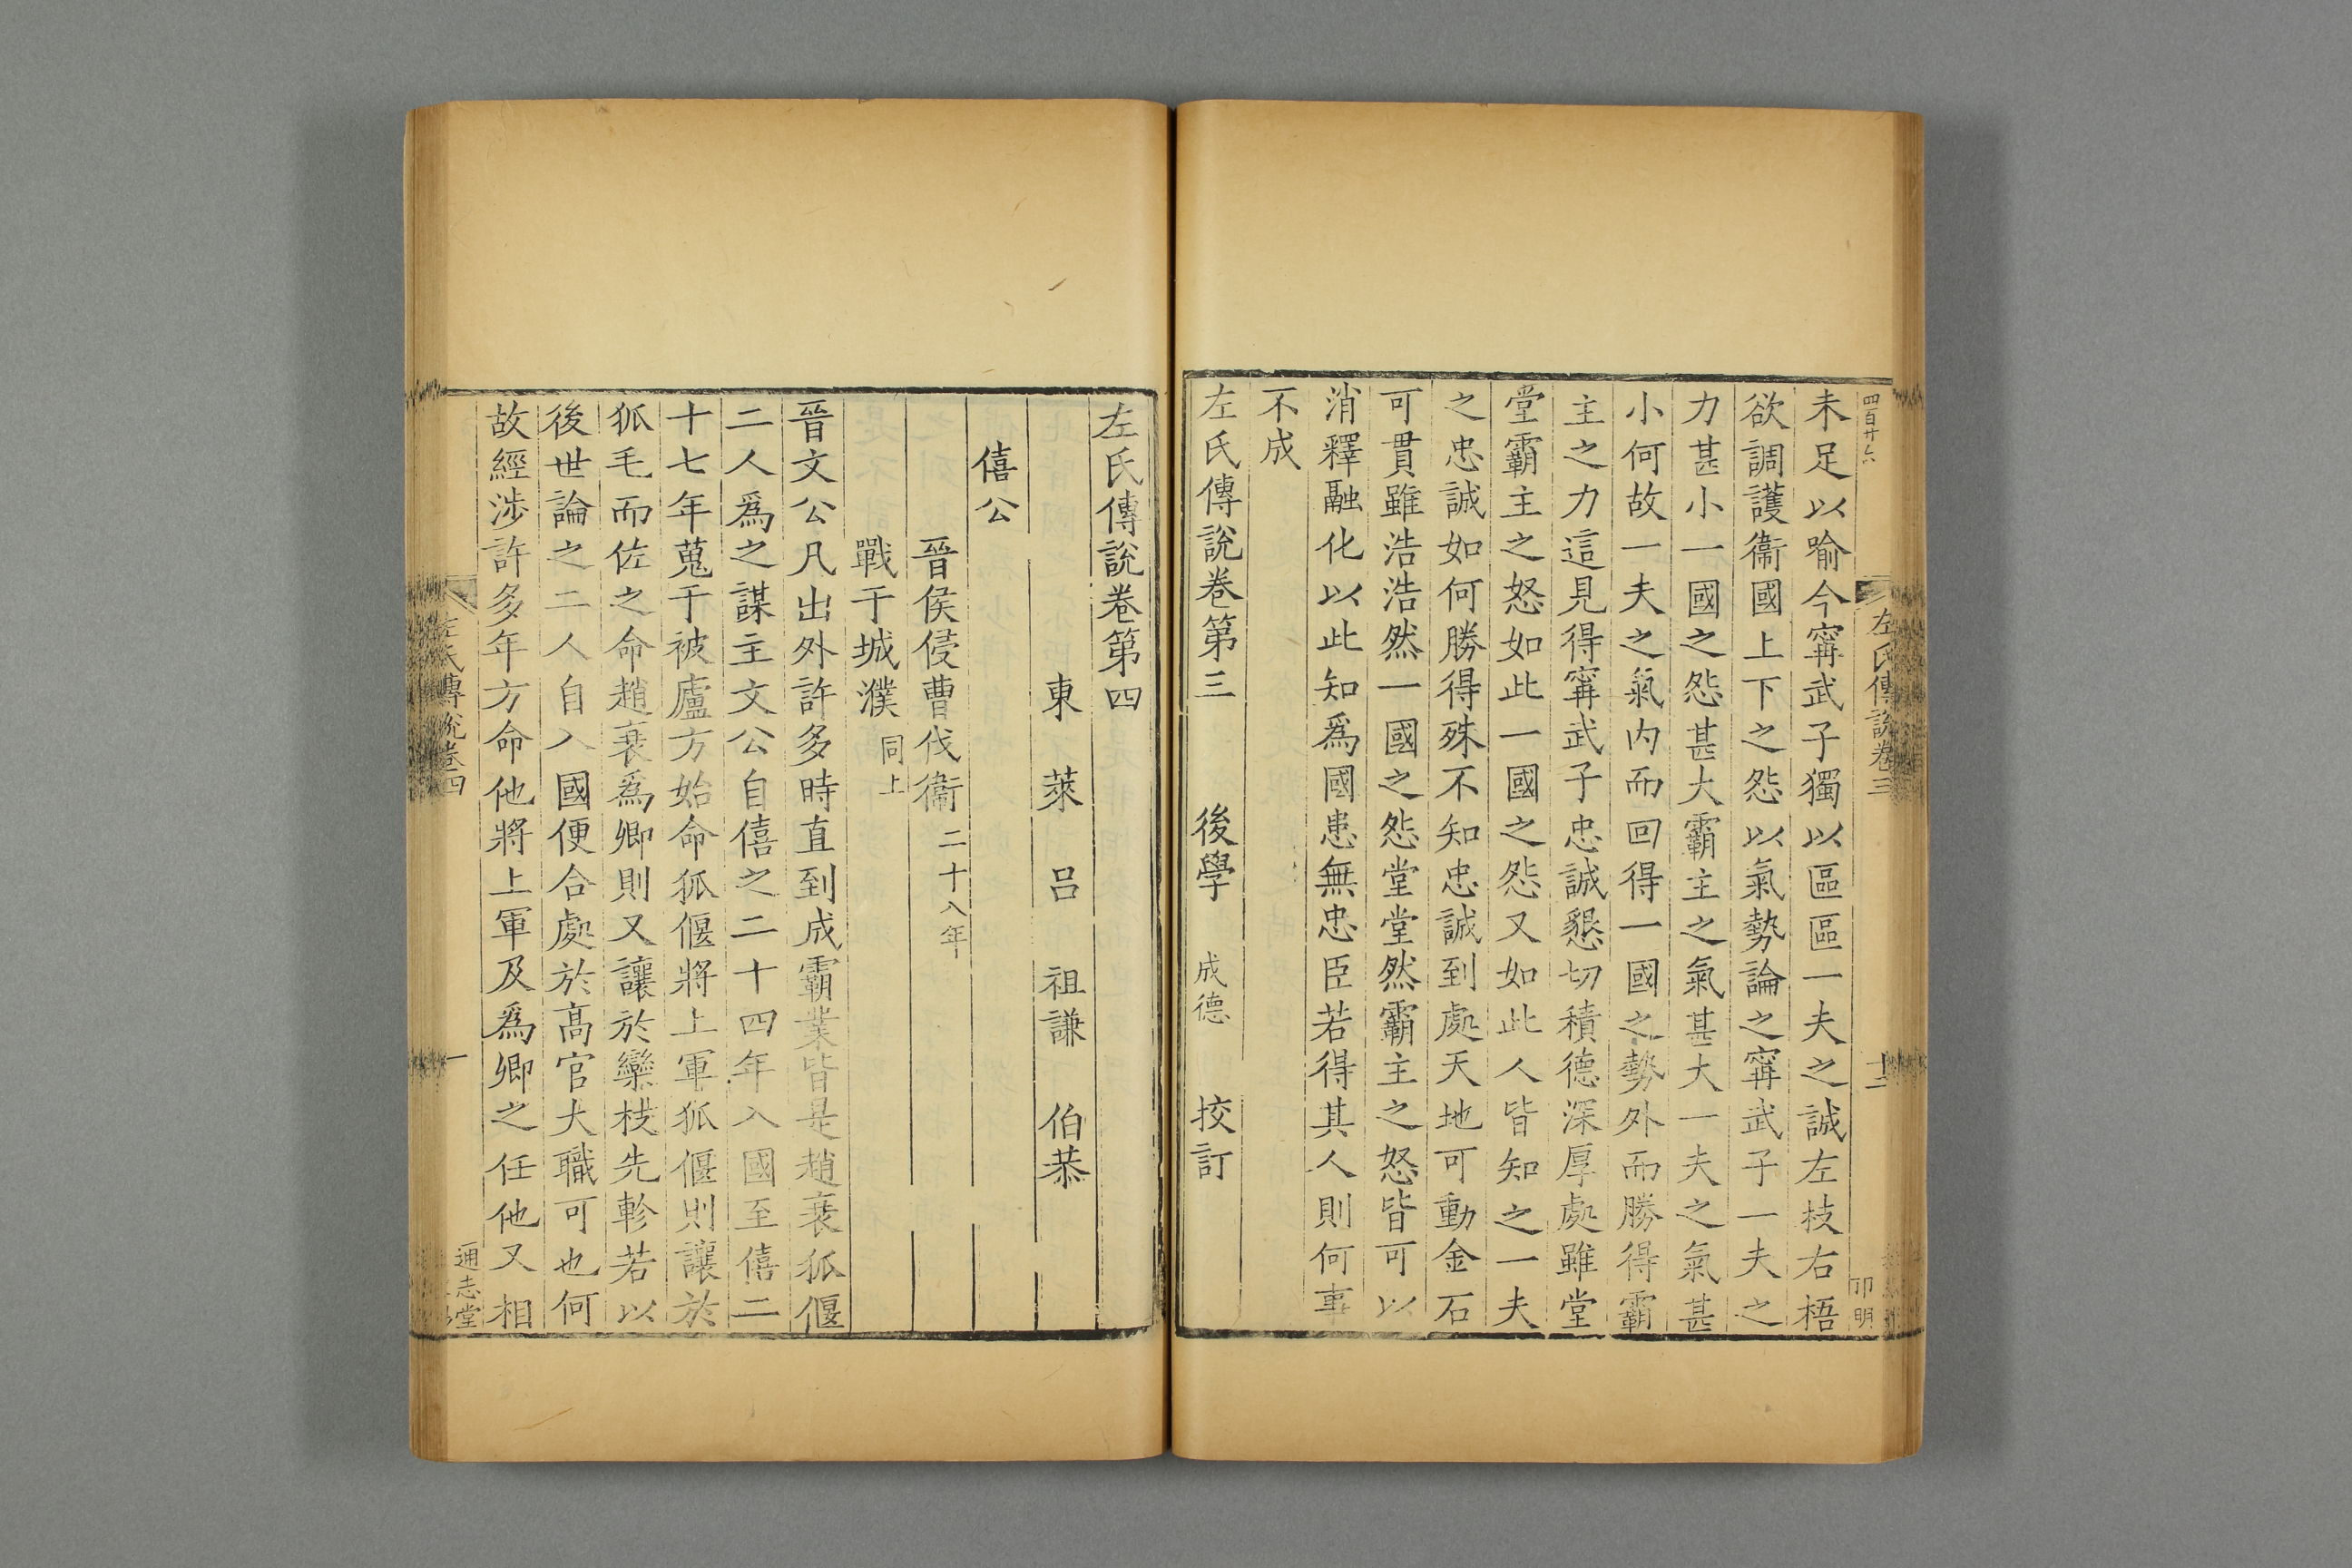 四百廿六
左氏傳說卷三
十二
卬明
未足以喻今寗武子獨以區區一夫之誠左枝右梧
欲調護衞國上下之怨以氣勢論之寗武子一夫之
力甚小一國之怨甚大霸主之氣甚大一夫之氣甚
小何故一夫之氣内而回得一國之勢外而勝得霸
主之力這見得寗武子忠誠懇切積德深厚處雖堂
堂霸主之怒如此一國之怨又如此人皆知之一夫
之忠誠如何勝得殊不知忠誠到處天地可動金石
可貫雖浩浩然一國之怨堂堂然霸主之怒皆可以
消釋融化以此知爲國患無忠臣若得其人則何事
不成
左氏傳說卷第三 後學 成德 挍訂
左氏傳說卷第四
東萊呂祖謙伯恭
僖公
晉侯侵曹伐衞 二十八年
戰于城濮 同上
晉文公凡出外許多時直到成霸業皆是趙衰狐偃
二人爲之謀主文公自僖之二十四年入國至僖二
十七年蒐于被廬方始命狐偃將上軍狐偃則讓於
狐毛而佐之命趙衰爲卿則又讓於欒枝先軫若以
後世論之二人自入國便合處於髙官大職可也何
故經涉許多年方命他將上軍及爲卿之任他又相
左氏傳說卷四
一
通志堂